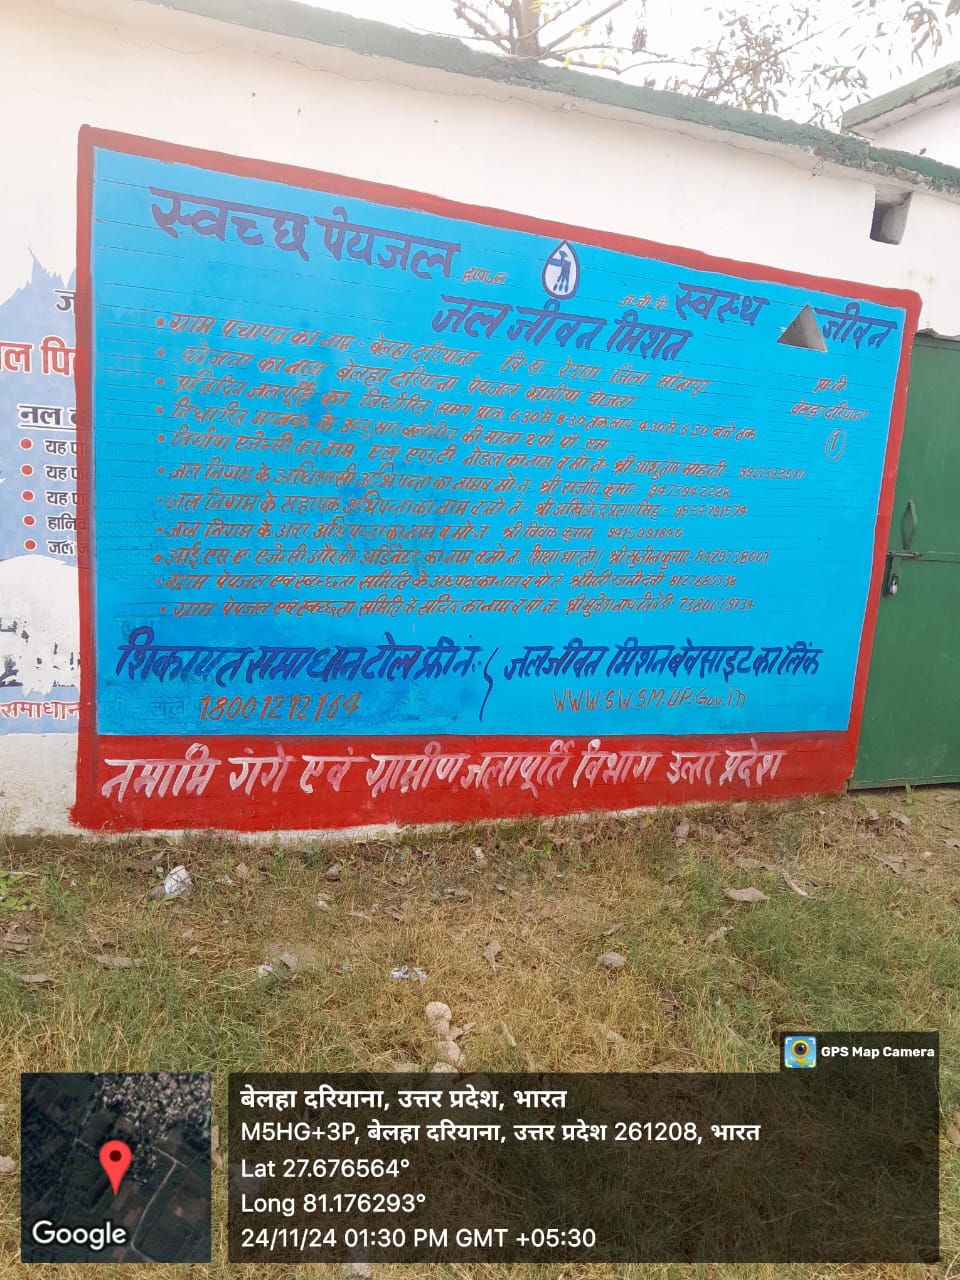 स्वच्छ पेयजल
स्वस्थ जीवन
जल जीवन मिशन
ग्राम पंचायत का नाम - बेलहा दरियाना वि.ख. रेउसा जिला सीतापुर
योजना का नाम बेलहा दरियाना पेयजल ग्रामीण योजना
बेलहा दरियाना
प्रतिदिन जलपूर्ति का निर्धारित समय प्रातः 6.30 से 8.30 तक सायं 4.30 से 6.30 बजे तक
1
निर्धारित मानक के अनुसार क्लोरीन की मात्रा 2 पी. पी. एम
निर्माण एजेन्सी का नाम एल एण्डटी नोडल का नाम व मो नं- श्री आशुतोष मोहन्ती
जल निगम के अधिशासी अभियन्ता का नाम व मो नं. श्री राजीव कुमार 9473942228
जल निगम के सहायक अभियन्ता का नाम व मो नं-
जल निगम के अवर अभियन्ता का नाम व मो.न श्री विवेक कुमार
आई.एस ए एजेन्सी और को आर्डिनेटर का नाम व मो नं. श्री सुनील कुमार 8429738001
ग्राम पेयजल एवं स्वच्छता समिति के अध्यक्ष का नाम व मो नं.
ग्राम पेयजल एवं स्वच्छता समिति के सचिव का नाम व मो नं.
शिकायत समाधान टोल फ्री नं.
18001212164
जल जीवन मिशन बेवसाइट का लिंक
WWW.SWSM.UP.Gov.in
नमामि गंगे एवं ग्रामीण जलापूर्ति विभाग उत्तर प्रदेश
नल
यह
यह
यह
समाधान
GPS Map Camera
बेलहा दरियाना, उत्तर प्रदेश, भारत
M5HG+3P, बेलहा दरियाना, उत्तर प्रदेश 261208, भारत
Lat 27.676564°
Long 81.176293°
24/11/24 01:30 PM GMT +05:30
Google